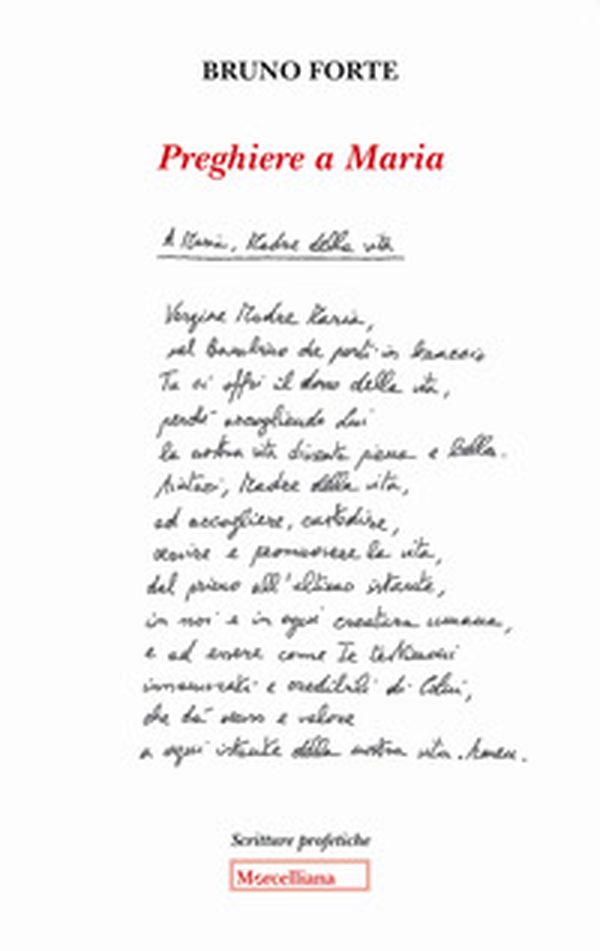 BRUNO FORTE
Preghiere a Maria
A Maria, Madre della vita
Vergine Madre Maria,
nel Bambino che porti in braccio
Tu ci offri il dono della vita,
perché accogliendo Lui
la nostra vita diventa piena e bella.
Aiutaci, Madre della vita,
ad accogliere, custodire,
servire e promuovere la vita,
dal primo all'ultimo istante,
in noi e in ogni creatura umana,
e ad essere come Te testimoni
innamorati e credibili di Colui,
che dà senso e valore
a ogni istante della nostra vita. Amen.
Scritture profetiche
Morcelliana